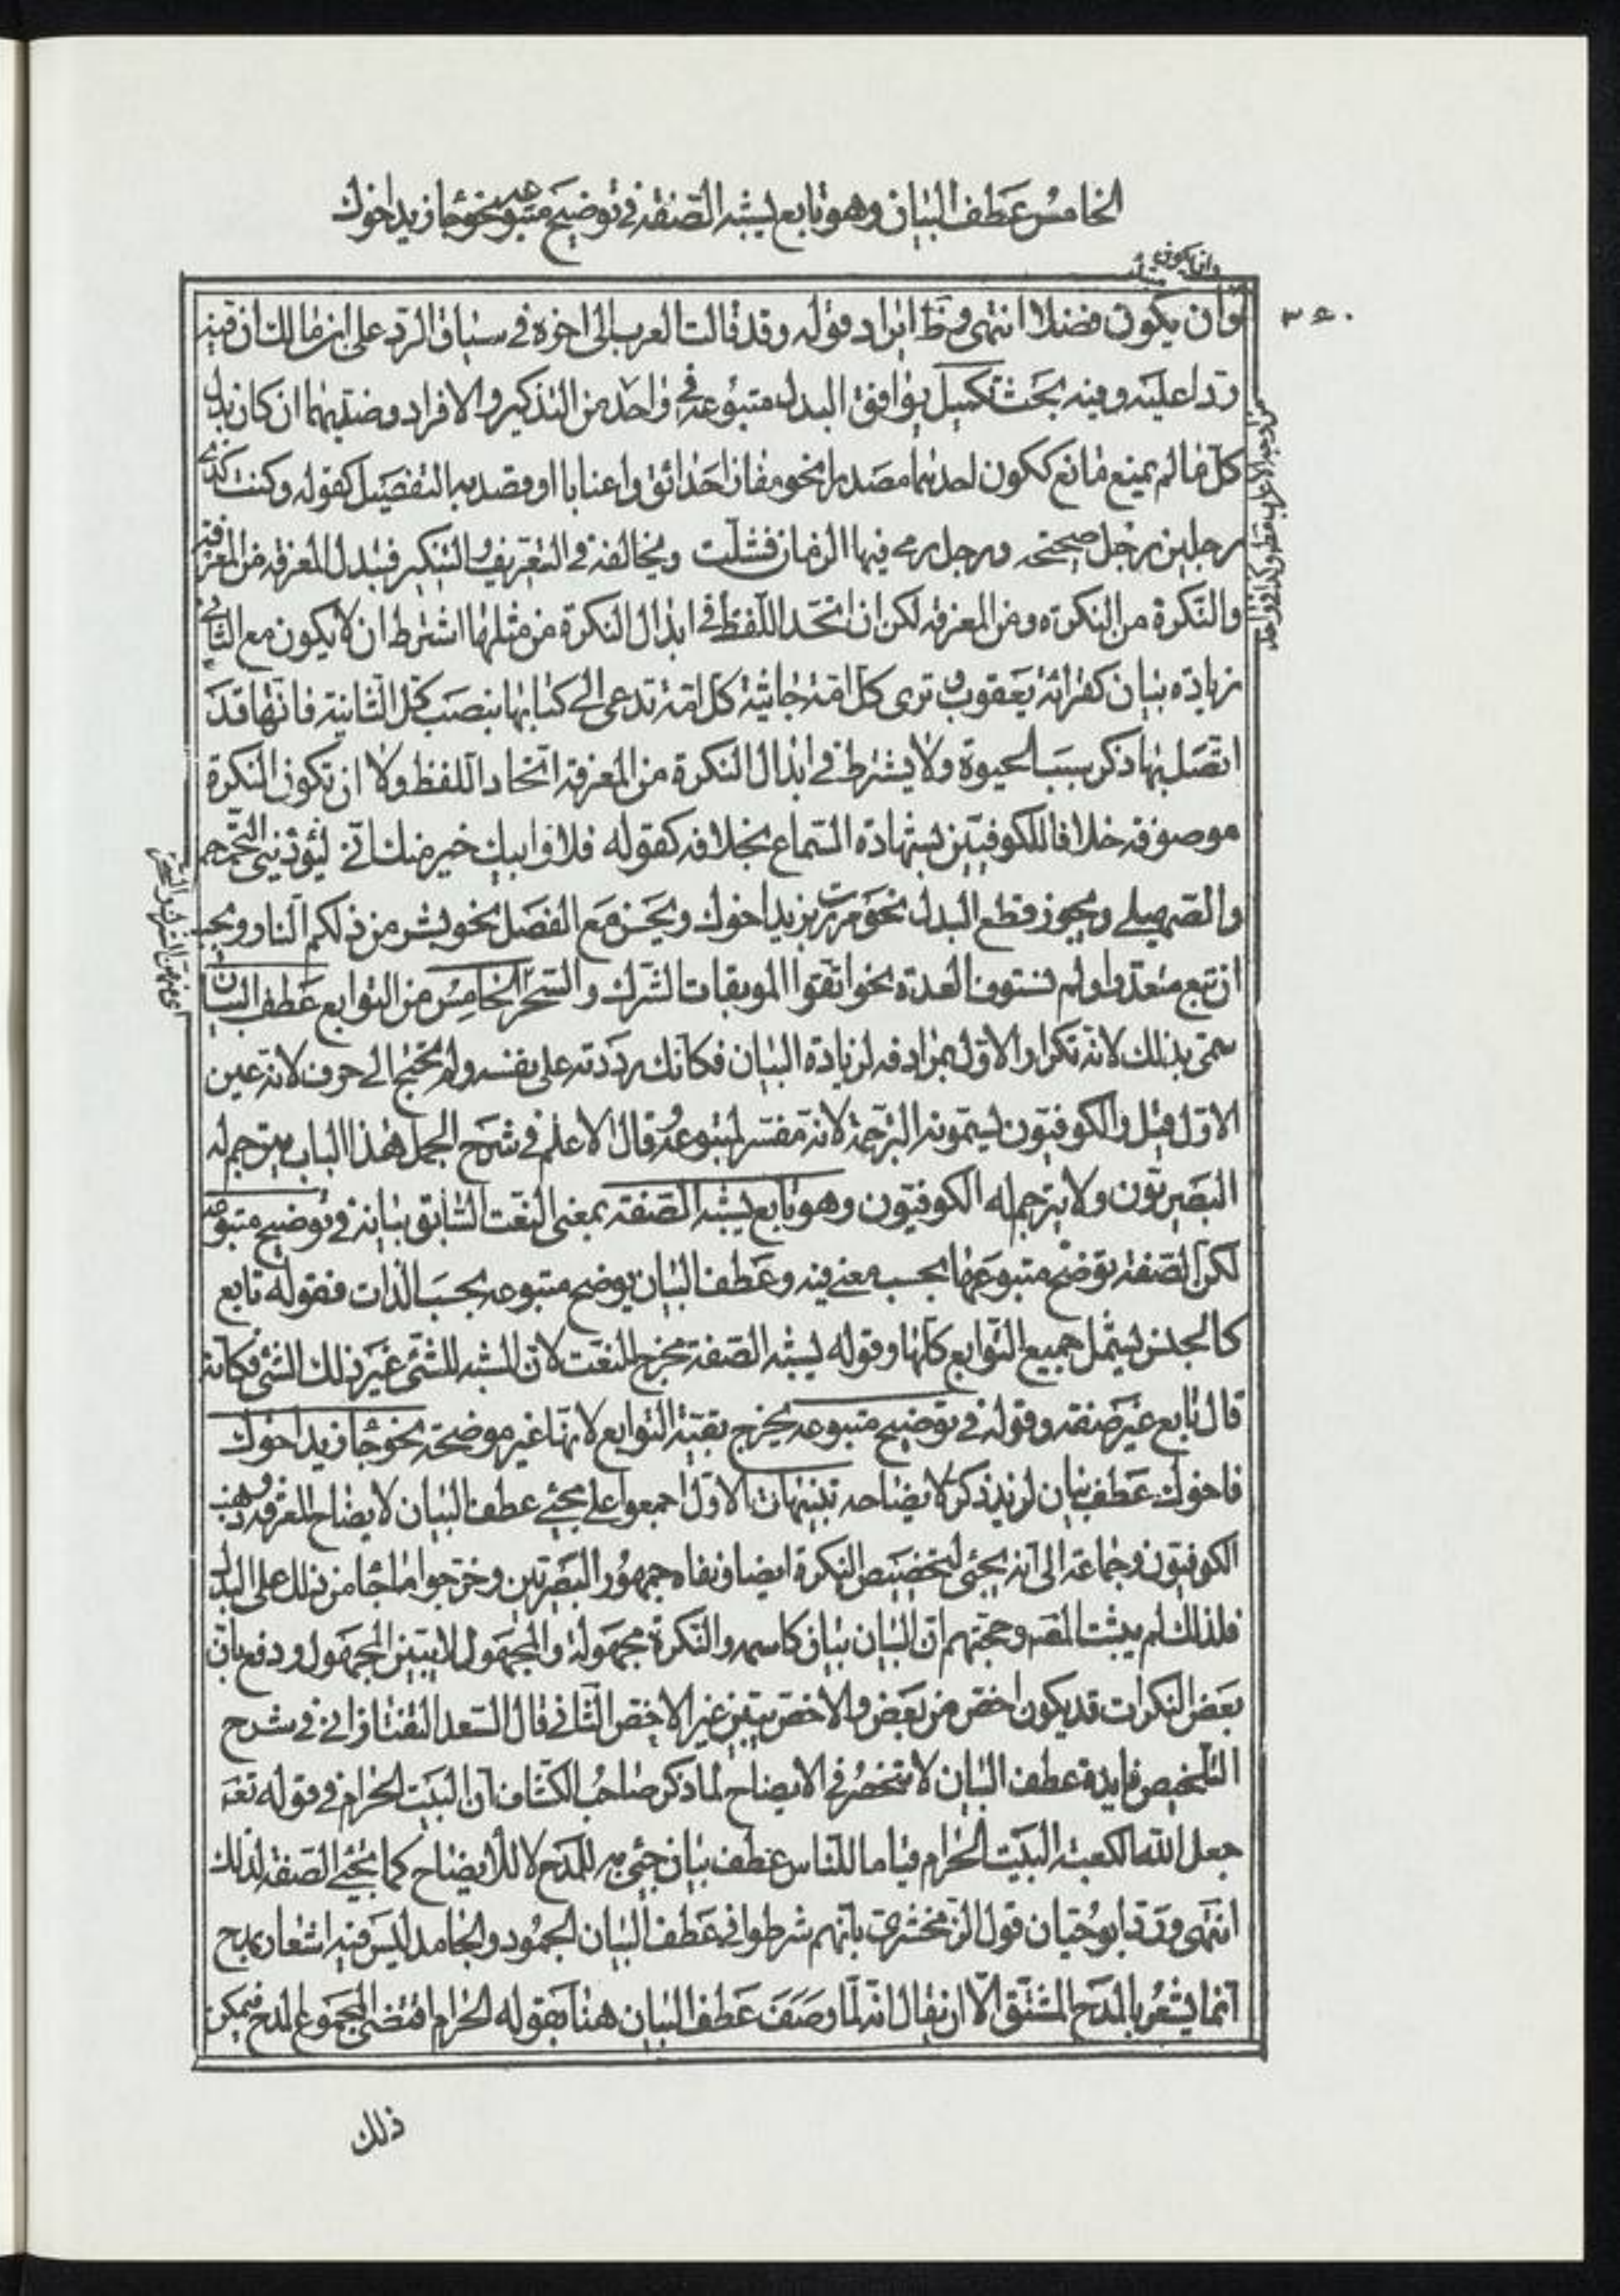 الخامس عطف البيان وهو تابع يشبه الصفة في توضيح متبوعه نحو جاء زيد اخوك
٣٤٠
وان يكون فضلا انتهى وفي ايراد قوله وقد قالت العرب الى اخره في سياق الرد على ابن مالك ان فيه
ردا عليه وفيه بحث تكميل يوافق البدل متبوعه في واحد من التذكير والافراد وضديهما ان كان بدل
كل ما لم يمنع مانع ككون احدهما مصدرا نحو مفازا حدائق واعنابا او قصد به التفصيل كقوله وكنت كذي
رجلين رجل صحيحة ورجل رمى فيها الزمان فشلت ويخالفه في التعريف والتنكير فتبدل المعرفة من المعرفة
والنكرة من النكرة ومن المعرفة لكن ان اتحد اللفظ في ابدال النكرة من مثلها اشترط ان لا يكون مع الثاني
زيادة بيان كقرائة يعقوب وترى كل امة جاثية كل امة تدعى الى كتابها بنصب كل الثانية فانها قد
اتصل بها ذكر سبب الجثو ولا يشترط في ابدال النكرة من المعرفة اتحاد اللفظ ولا ان تكون النكرة
موصوفة خلافا للكوفيين لشهادة السماع بخلافه كقوله فلا وابيك خير منك اني ليؤذيني التحمحم
والصهيل ويجوز قطع البدل نحو مررت بزيد اخوك ويحسن مع الفصل نحو بشر من ذلكم النار ويجب
ان تبع متعددا ولم تستوف العدة نحو اتقوا الموبقات الشرك والسحر الخامس من التوابع عطف البيان
سمي بذلك لانه تكرار الاول بمرادفه لزيادة البيان فكانك رددته على نفسه ولم تحتج الى حرف لانه عين
الاول قيل والكوفيون يسمونه الترجمة لانه مفسر لمتبوعه وقال الاعلم في شرح الجمل هذا الباب يترجم له
البصريون ولا يترجم له الكوفيون وهو تابع يشبه الصفة بمعنى النعت السابق بيانه في توضيح متبوعه
لكن الصفة توضح متبوعها بحسب معنى فيه وعطف البيان يوضح متبوعه بحسب الذات فقوله تابع
كالجنس يشمل جميع التوابع كلها وقوله يشبه الصفة مخرج للنعت لان المشبه للشئ غير ذلك الشئ فكانه
قال تابع غير صفة وقوله في توضيح متبوعه يخرج بقية التوابع لانها غير موضحة نحو جاء زيد اخوك
فاخوك عطف بيان لزيد ذكر لايضاحه تنبيهات الاول اجمعوا على مجئ عطف البيان لايضاح المعرفة وذهب
الكوفيون وجماعة الى انه يجئ لتخصيص النكرة ايضا ونفاه جمهور البصريين وخرجوا ما جاء من ذلك على البدل
فلذلك لم يثبت المصه وحجتهم ان البيان بيان كاسمه والنكرة مجهولة والمجهول لا يبين المجهول ودفع بان
بعض النكرات قد يكون اخص من بعض والاخص يبين غير الاخص الثاني قال السعد التفتازاني في شرح
التلخيص فايدة عطف البيان لا تنحصر في الايضاح لما ذكر صاحب الكشاف ان البيت الحرام في قوله تعه
جعل الله الكعبة البيت الحرام قياما للناس عطف بيان جئ به للمدح لا للايضاح كما تجئ الصفة لذلك
انتهى ورد ابو حيان قول الزمخشري بانهم شرطوا في عطف البيان الجمود والجامد ليس فيه اشعار بمدح
انما يشعر بالمدح المشتق الا ان يقال انه لما وصف عطف البيان هنا بقوله الحرام اقتضى المجموع المدح فيمكن
ذلك